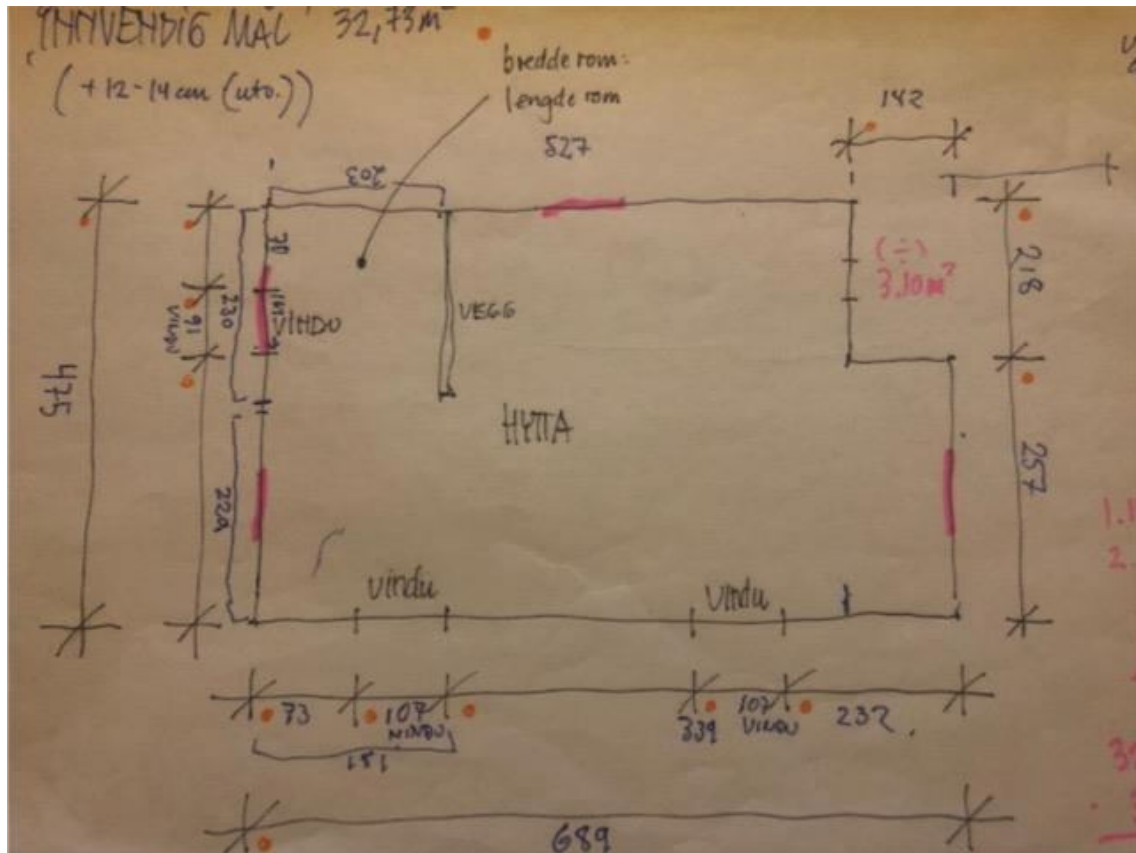 INNVENDIG MÅL 32,73m²
(+12-14cm (utv.))
bredde rom:
lengde rom
527
142
203
70
230
91
VINDU
VINDU
VEGG
(÷)
3.10m²
218
475
HYTTA
257
229
vindu
vindu
73
107
VINDU
181
339
107
VINDU
232
689
1.1
2.